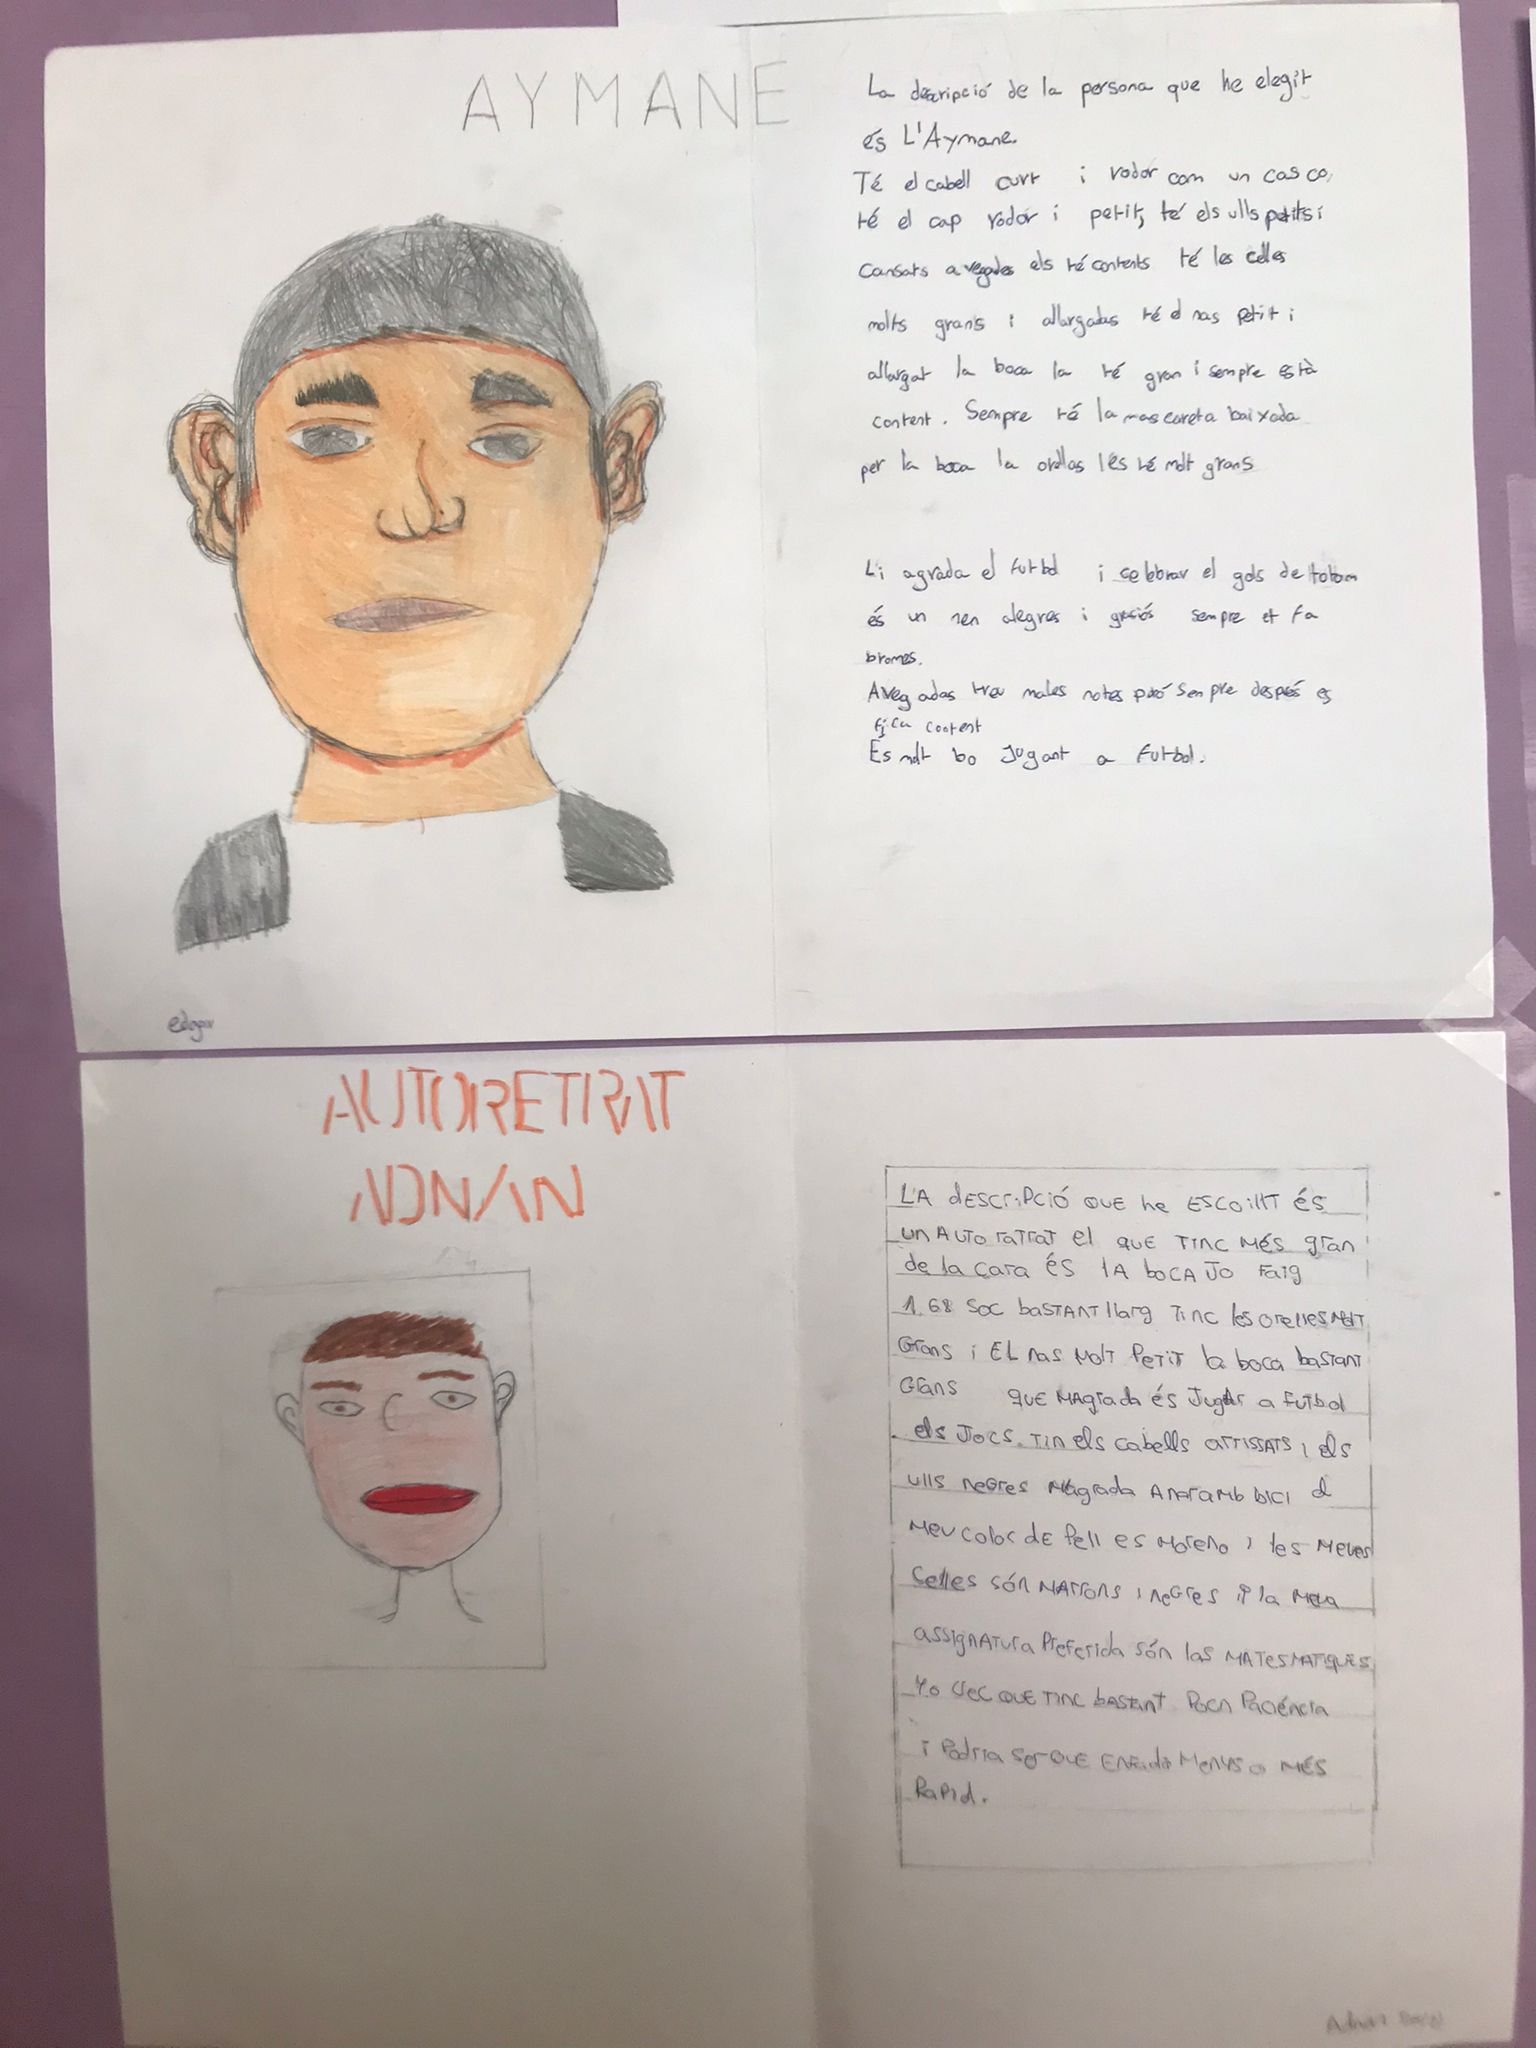 AYMANE
La descripció de la persona que he elegit
és L'Aymane.
Té el cabell curt i rodor com un casco,
té el cap rodor i petit, té els ulls petits i
cansats avegades els té contents té les celles
molts grans i allargadas té el nas petit i
allargat la boca la té gran i sempre està
content. Sempre té la mascareta baixada
per la boca la orellas les té molt grans
Li agrada el futbol i celebrar el gols de tothom
és un nen alegres i graciós sempre et fa
bromes.
Avegadas treu males notes peró sempre després es
fica content
És molt bo jugant a futbol.
edgar
AUTORETRAT
ADNAN
L'A dESCriPCió QUE he ESCOillT éS
un AUTO raTraT el QUE TINC MéS gran
de la cara éS lA boCA JO Faig
1.68 SOC baSTANT llarg TINC les orelles MOLT
Grans i EL nas MOLT PeTiT la boca basTanT
Grans QUE MAgrada éS JUgAr a FUTbol
els JOCS. TIN els cabells arrissats i els
ulls neGres MAgrada Anar amb bici el
MeU color dE Pell es Moreno i les Meves
Celles són MArrons i neGres i la Meva
assignATura Preferida són las MATesMATIQUES
Yo crec QUE TINC basTant Poca Paciéncia
i Podria ser QUE Enfada MenYS o MÉS
RaPid.
Adnan